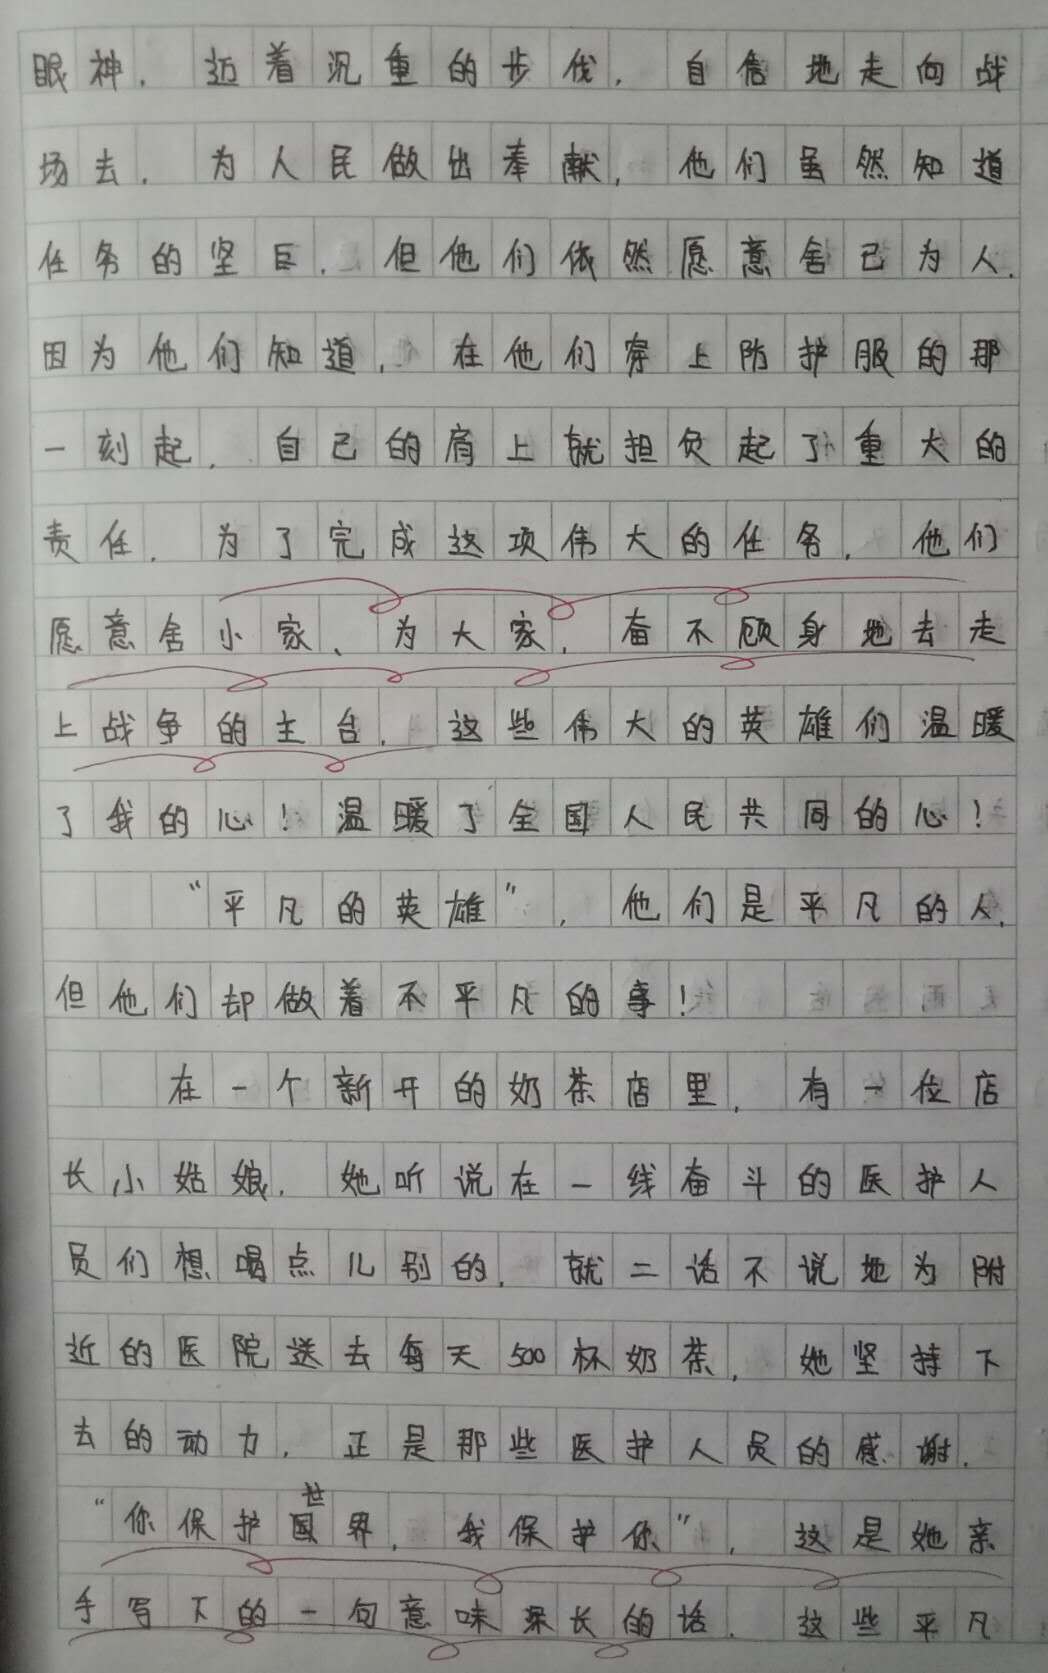 眼神，迈着沉重的步伐，自信地走向战
场去，为人民做出奉献，他们虽然知道
任务的坚巨，但他们依然愿意舍己为人，
因为他们知道，在他们穿上防护服的那
一刻起，自己的肩上就担负起了重大的
责任，为了完成这项伟大的任务，他们
愿意舍小家、为大家，奋不顾身地去走
上战争的主台，这些伟大的英雄们温暖
了我的心！温暖了全国人民共同的心！
“平凡的英雄”，他们是平凡的人，
但他们却做着不平凡的事！
在一个新开的奶茶店里，有一位店
长小姑娘，她听说在一线奋斗的医护人
员们想喝点儿别的，就二话不说地为附
近的医院送去每天500杯奶茶，她坚持下
去的动力，正是那些医护人员的感谢，
“你保护世界，我保护你”，这是她亲
手写下的一句意味深长的话，这些平凡